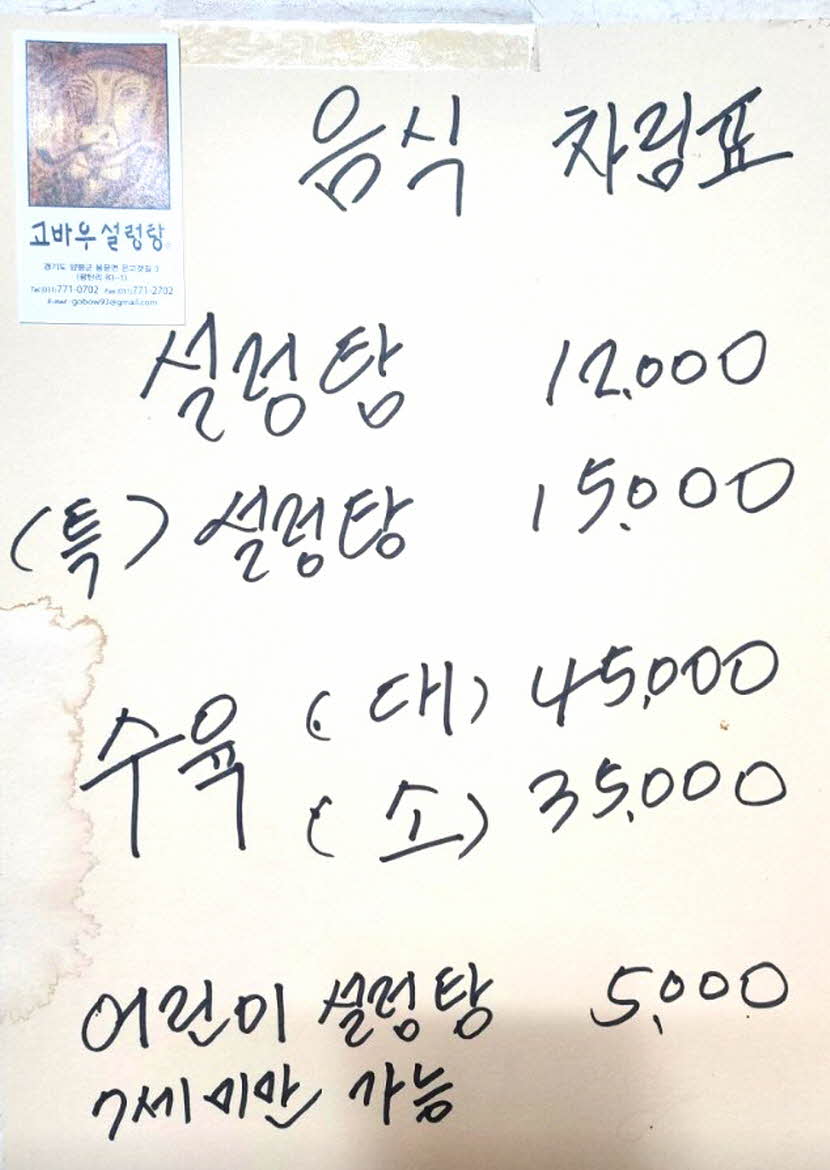 음식 차림표
고바우설렁탕
경기도 양평군 용문면 은고갯길 3
(광탄리 83-1)
Tel:(031)771-0702 Fax:(031)771-2702
E-mail : gobow93@gmail.com
설렁탕 12,000
(특) 설렁탕 15,000
수육 (대) 45,000
(소) 35,000
어린이 설렁탕 5,000
7세 미만 가능